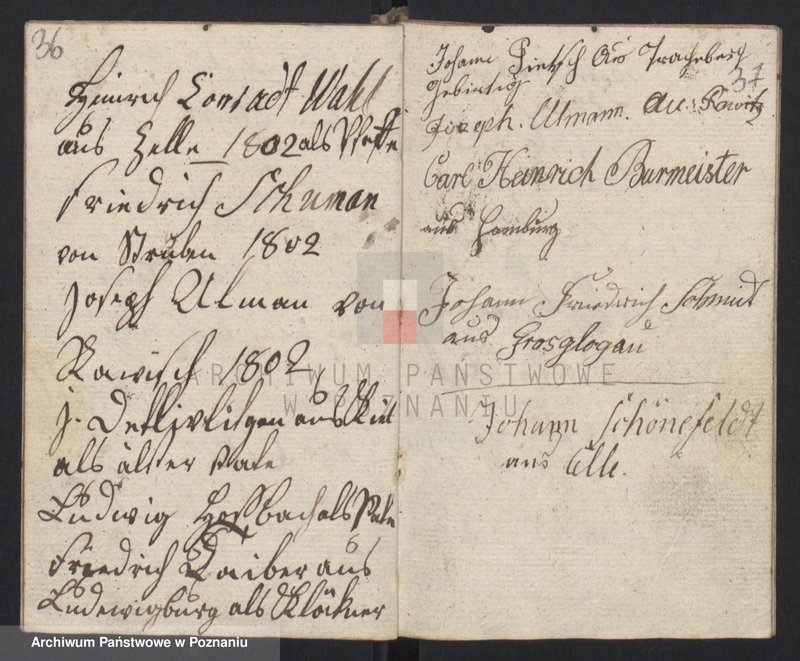 36
Heinrich Conradt Wahl
aus Zelle 1802 als Pfaffe
Friedrich Schuman
von Struben 1802
Joseph Ulman von
Rawisch 1802
J. Detlivlitgen aus Kiel
als älster Pate
Ludwig Hossbach als Pate
Friedrich Daiber aus
Ludewigburg als Klöckner
37
Johann Pietsch Aus
gebirtig
Joseph. Ulmann. Aus Rawitz
Carl Heinrich Burmeister
aus Hamburg
Johann Friedrich Schmidt
aus Grosglogau
Johann Schönefeldt
aus Celle.
ARCHIWUM PAŃSTWOWE
W POZNANIU
Archiwum Państwowe w Poznaniu